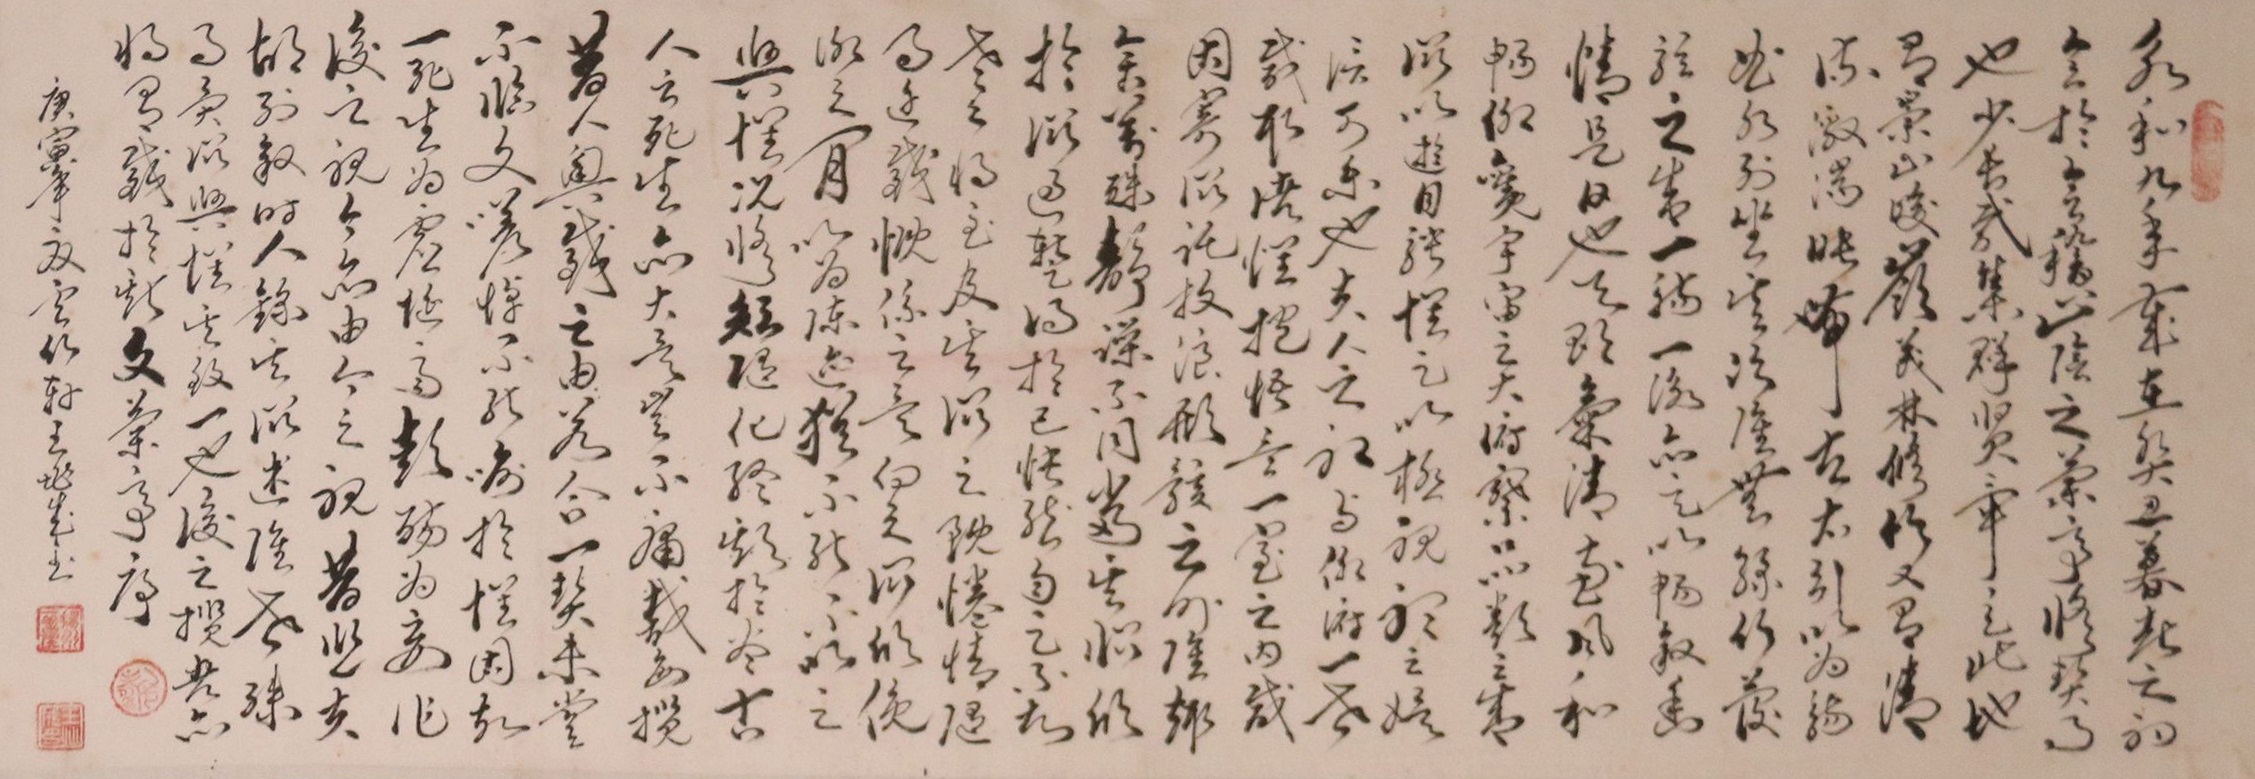 永和九年歲在癸丑暮春之初
會於會稽山陰之蘭亭脩禊事
也少長咸集群賢畢至此地
有崇山峻嶺茂林脩竹又有清
流激湍映帶左右引以為觴
曲水列坐其次雖無絲竹管
弦之盛一觴一詠亦足以暢敘幽
情是日也天朗氣清惠風和
暢仰觀宇宙之大俯察品類之盛
所以遊目騁懷足以極視聽之娛
信可樂也夫人之相与仰俯一世
或取諸懷抱悟言一室之內或
因寄所託放浪形骸之外雖趣
舍萬殊靜躁不同當其所欣
於所遇暫得於己快然自足不知
老之將至及其所之既惓情隨
事遷感慨係之矣向之所欣俛
仰之間以為陳迹猶不能不以之
興懷況脩短隨化終期於盡古
人云死生亦大矣豈不痛哉每攬
昔人興感之由若合一契未嘗
不臨文嗟悼不能喻於懷固知
一死生為虛誕齊彭殤為妄作
後之視今亦由今之視昔悲夫
故列敘時人錄其所述雖世殊
事異所興懷其致一也後之攬者亦
將有感於斯文蘭亭序
庚寅年夏雲竹軒主兆成書